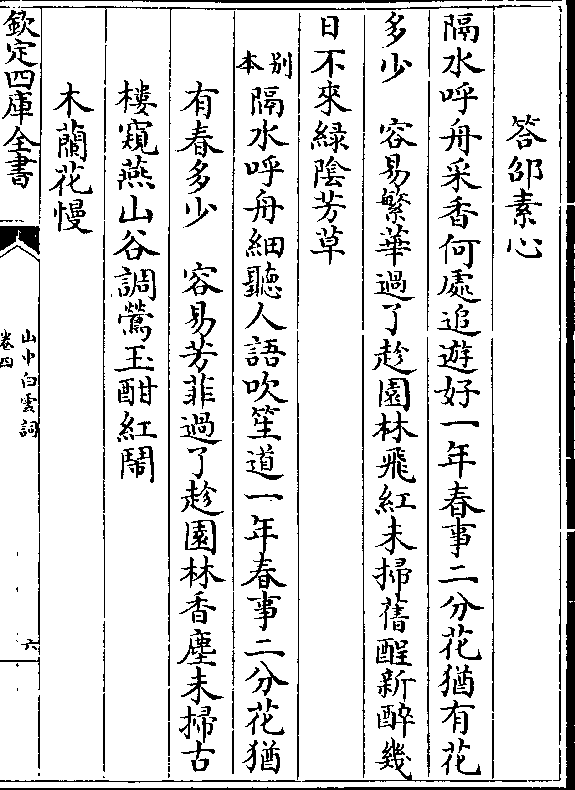 答邵素心
隔水呼舟采香何處追遊好一年春事二分花猶有花
多少　容易繁華過了趁園林飛紅未掃舊酲新醉幾
日不來緑陰芳草
别本隔水呼舟細聽人語吹笙道一年春事二分花猶
有春多少　容易芳菲過了趁園林香塵未掃古
樓窺燕山谷調鶯玉酣紅鬧
木蘭花慢
欽定四庫全書
山中白雲詞
卷四
六